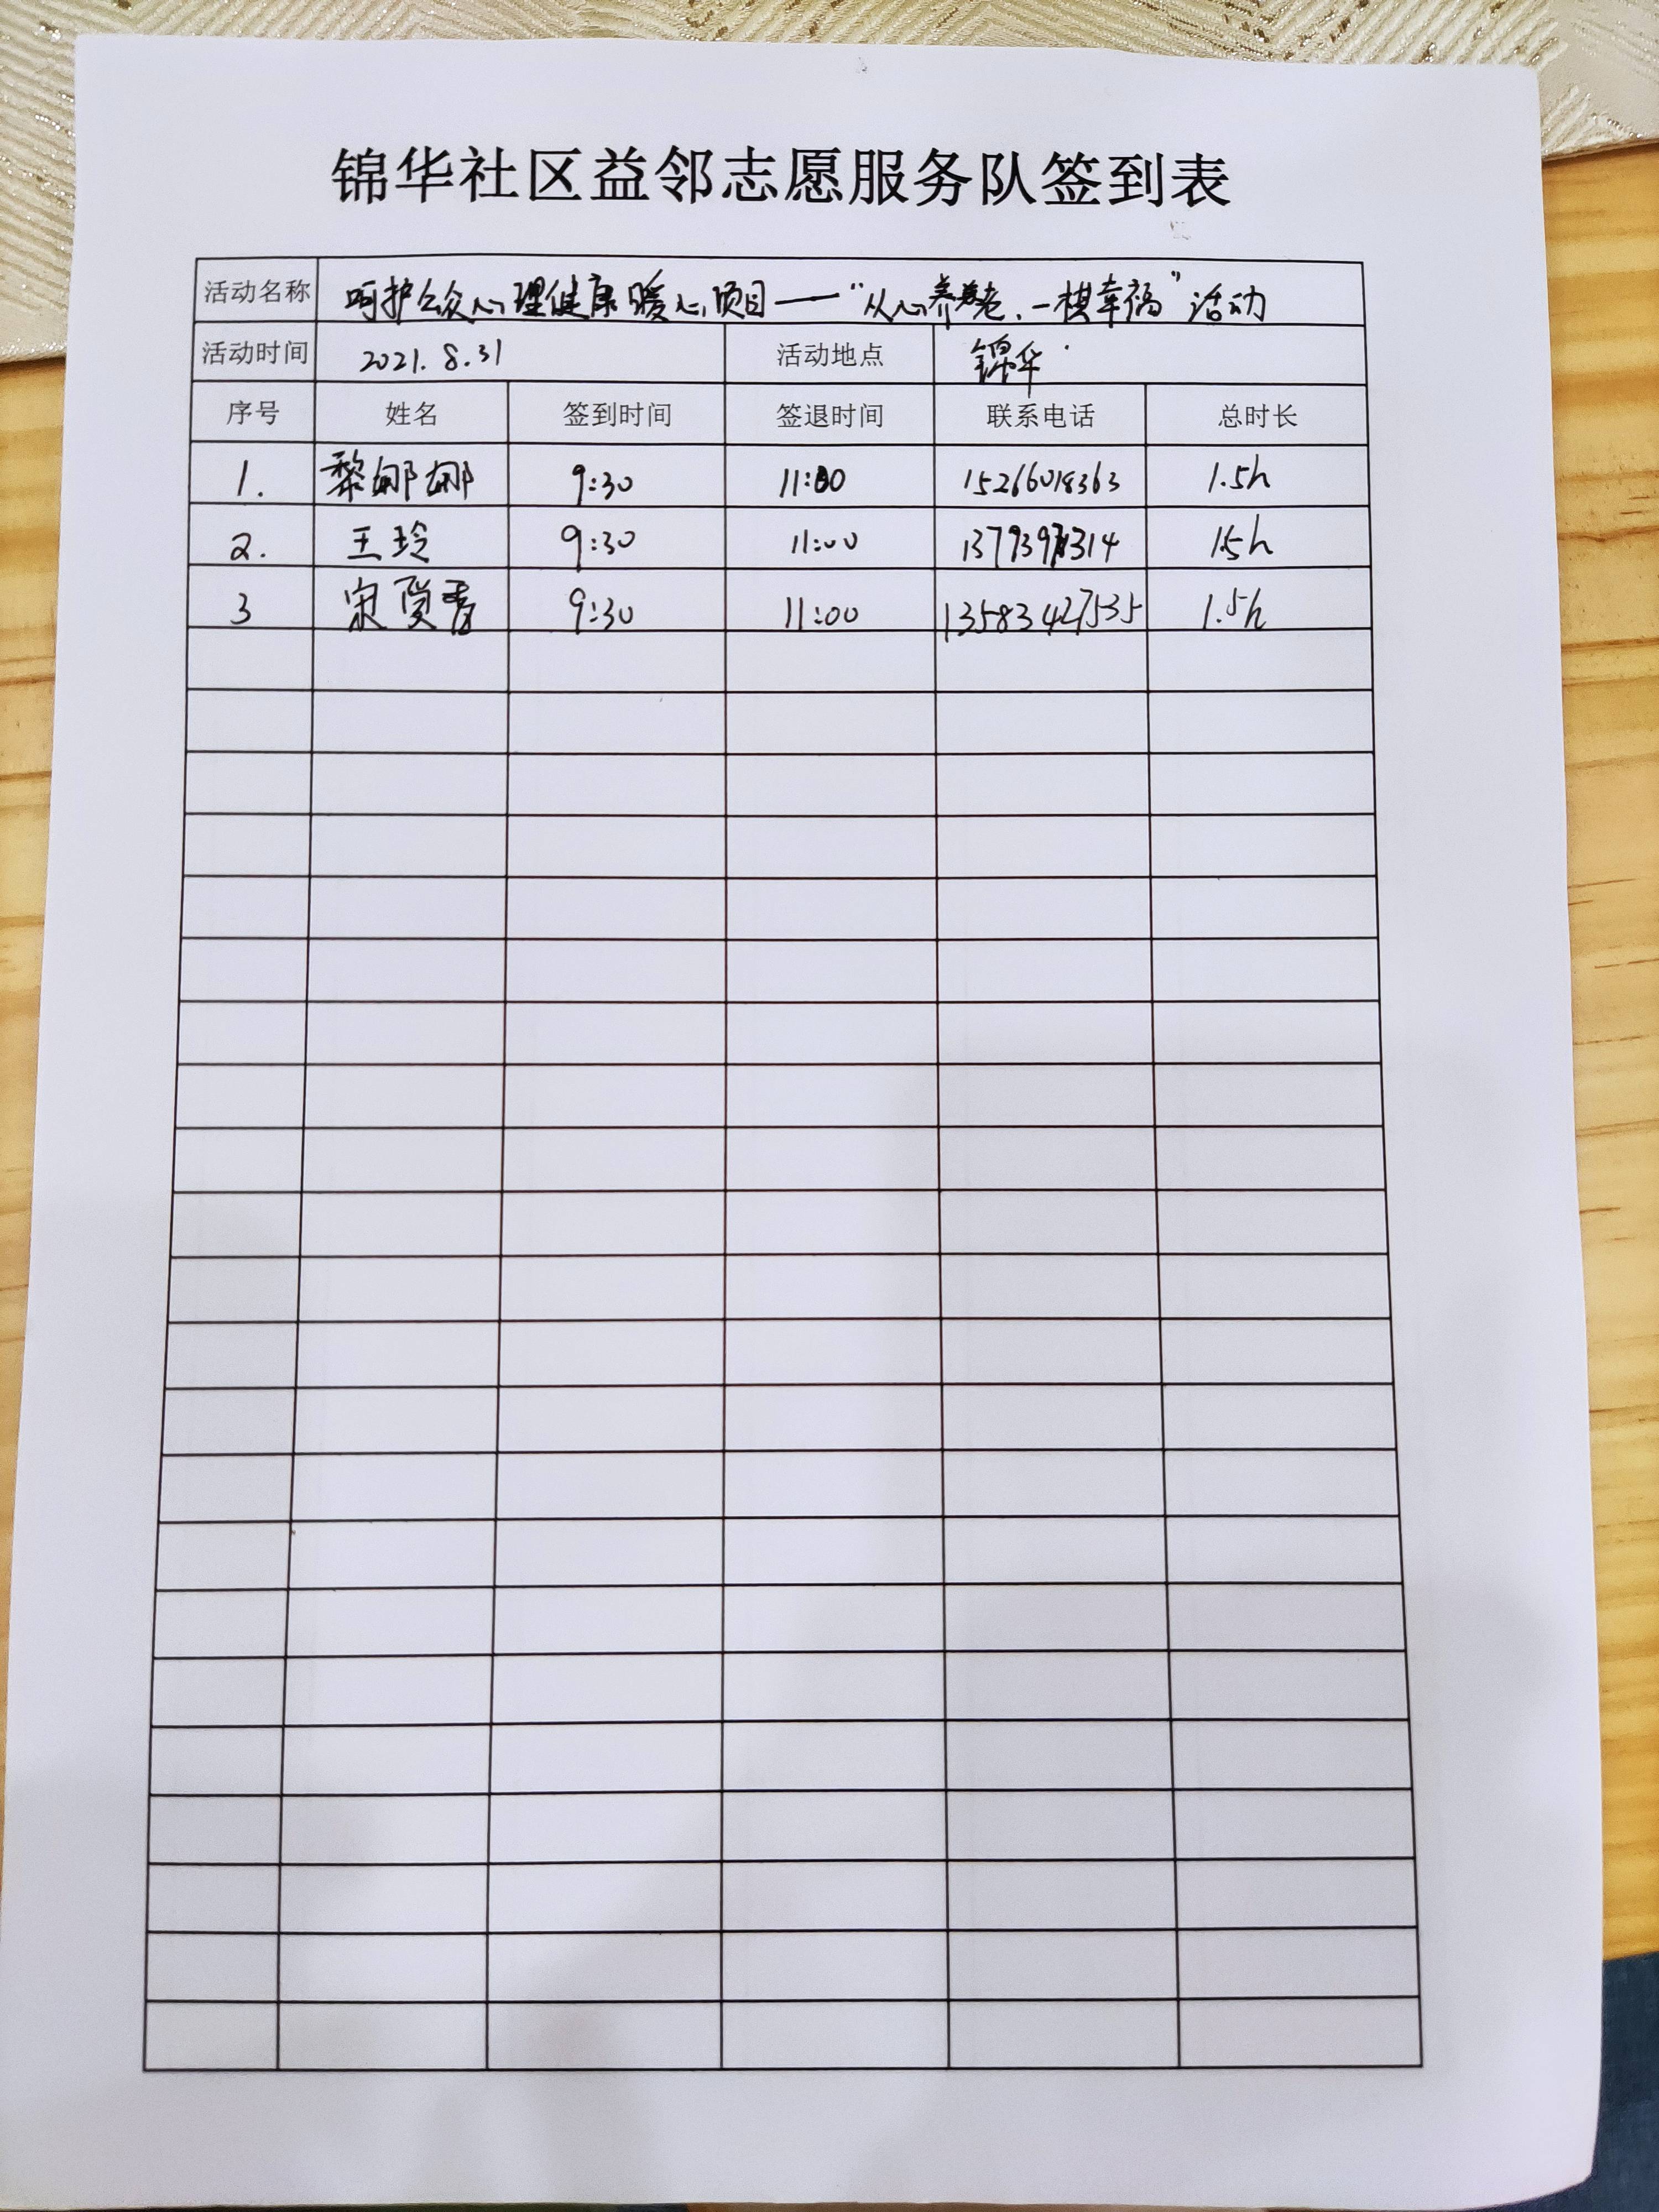 锦华社区益邻志愿服务队签到表
活动名称 呵护公众心理健康暖心项目——“从心养老、一棋幸福”活动
活动时间 2021.8.31 活动地点 锦华
序号 姓名 签到时间 签退时间 联系电话 总时长
1. 黎娜娜 9:30 11:00 15266018363 1.5h
2. 王玲 9:30 11:00 1.5h
3 宋 9:30 11:00 13583427535 1.5h